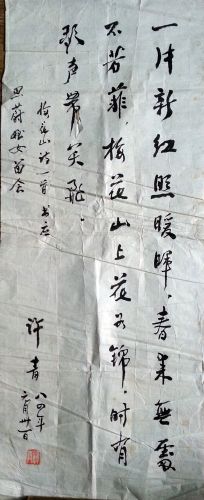 一片新红照暖晖，春来無處
不芳菲，梅花山上花如锦，时有
歌声带笑飞。
梅花山诗一首 书应
思蔚女留念
许青 八四年
六月廿日